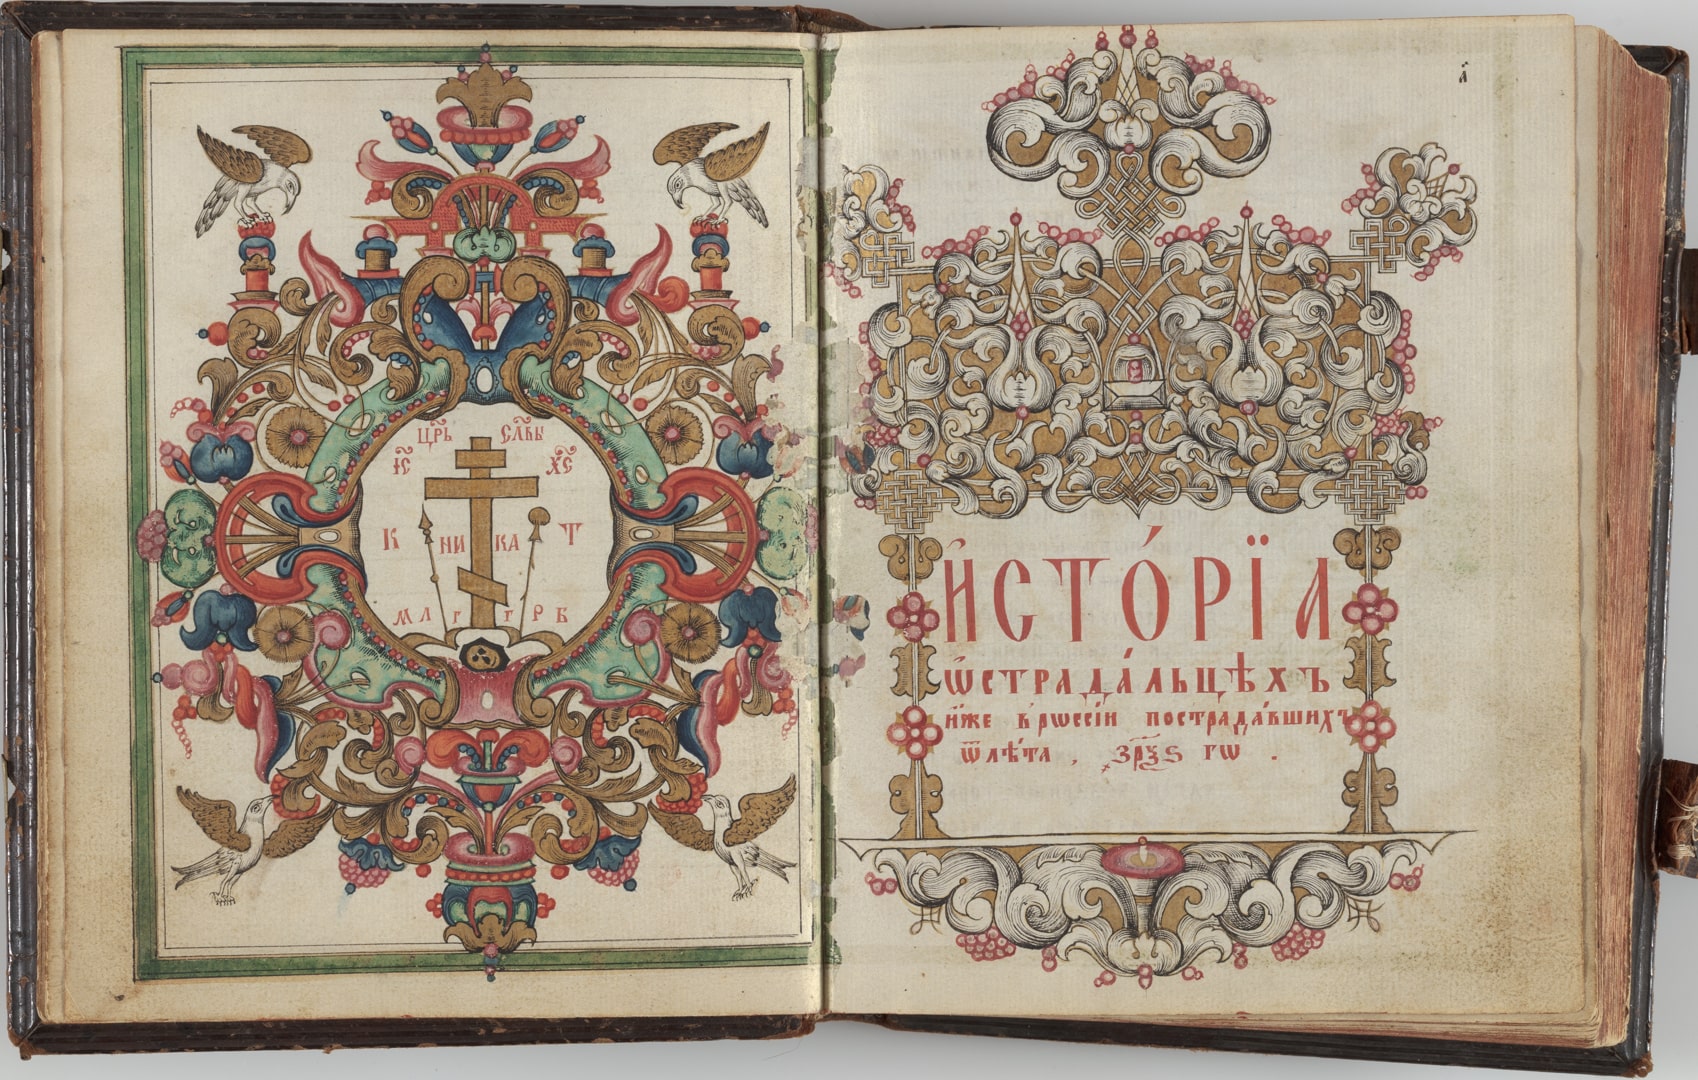 Цр҃ь Сла҃вы
І҃с Х҃с
К Т
НИ КА
М Л Р Г Г Р Б
а҃
И҆СТО́РЇѦ
ѡ҆страда́льцѣхъ
и҆́же в рѡссі́и пострада́вшихъ
ѿ лѣ́та , ҂зр҃ѯѕ гѡ .